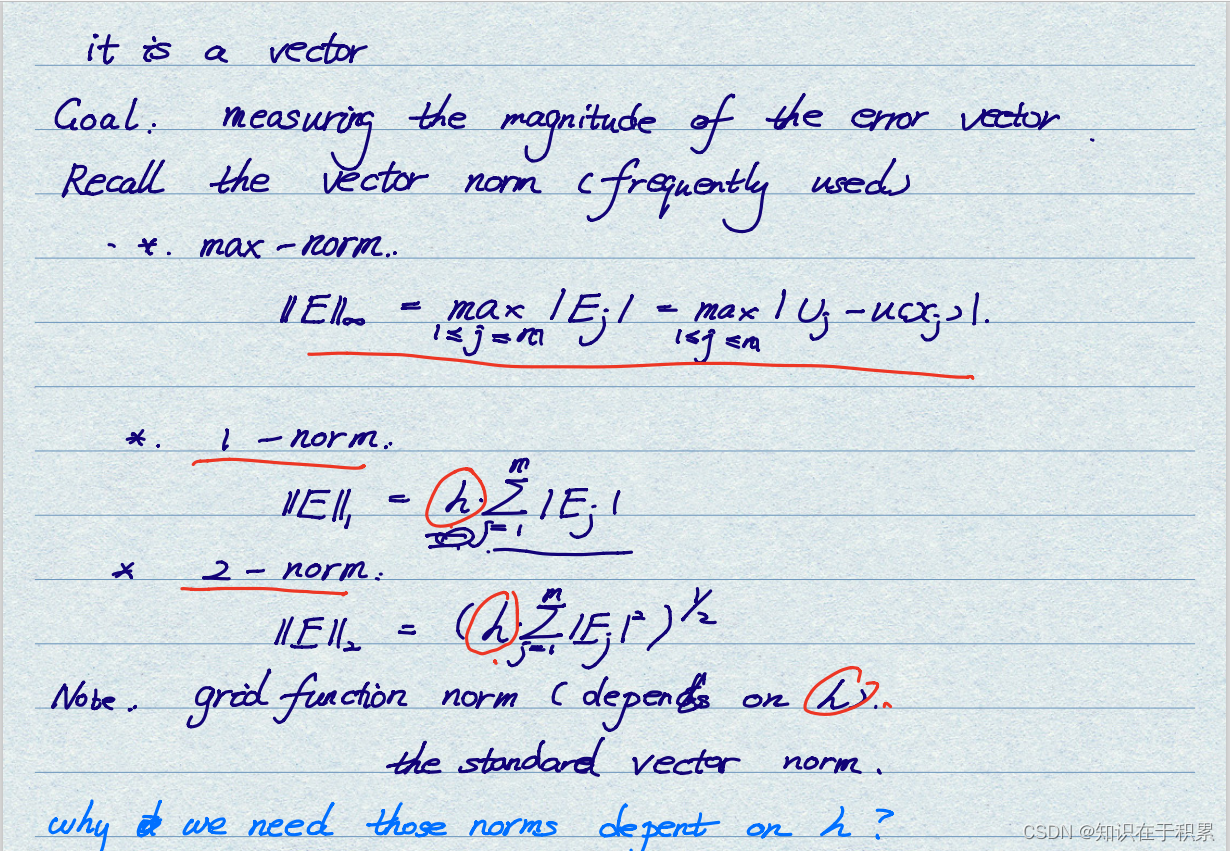 it is a vector
Goal: measuring the magnitude of the error vector.
Recall the vector norm (frequently used)
- *. max - norm..
‖E‖∞ = max |Ej| = max |Uj - u(xj)|.
1≤j≤m 1≤j≤m
*. 1 - norm.
‖E‖₁ = h·∑ⱼ₌₁ᵐ |Ej|
* 2 - norm.
‖E‖₂ = (h·∑ⱼ₌₁ᵐ |Ej|²)^1/2
Note.. grid function norm (depends on h)..
the standard vector norm.
why we need those norms depent on h?
CSDN @知识在于积累